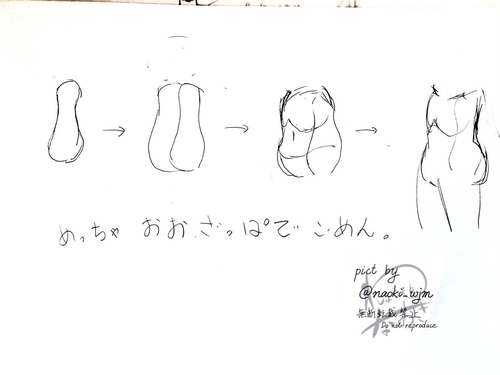 めっちゃ おおざっぱで ごめん。
pict by
@naoki_wjm
無断転載禁止
Do not reproduce.